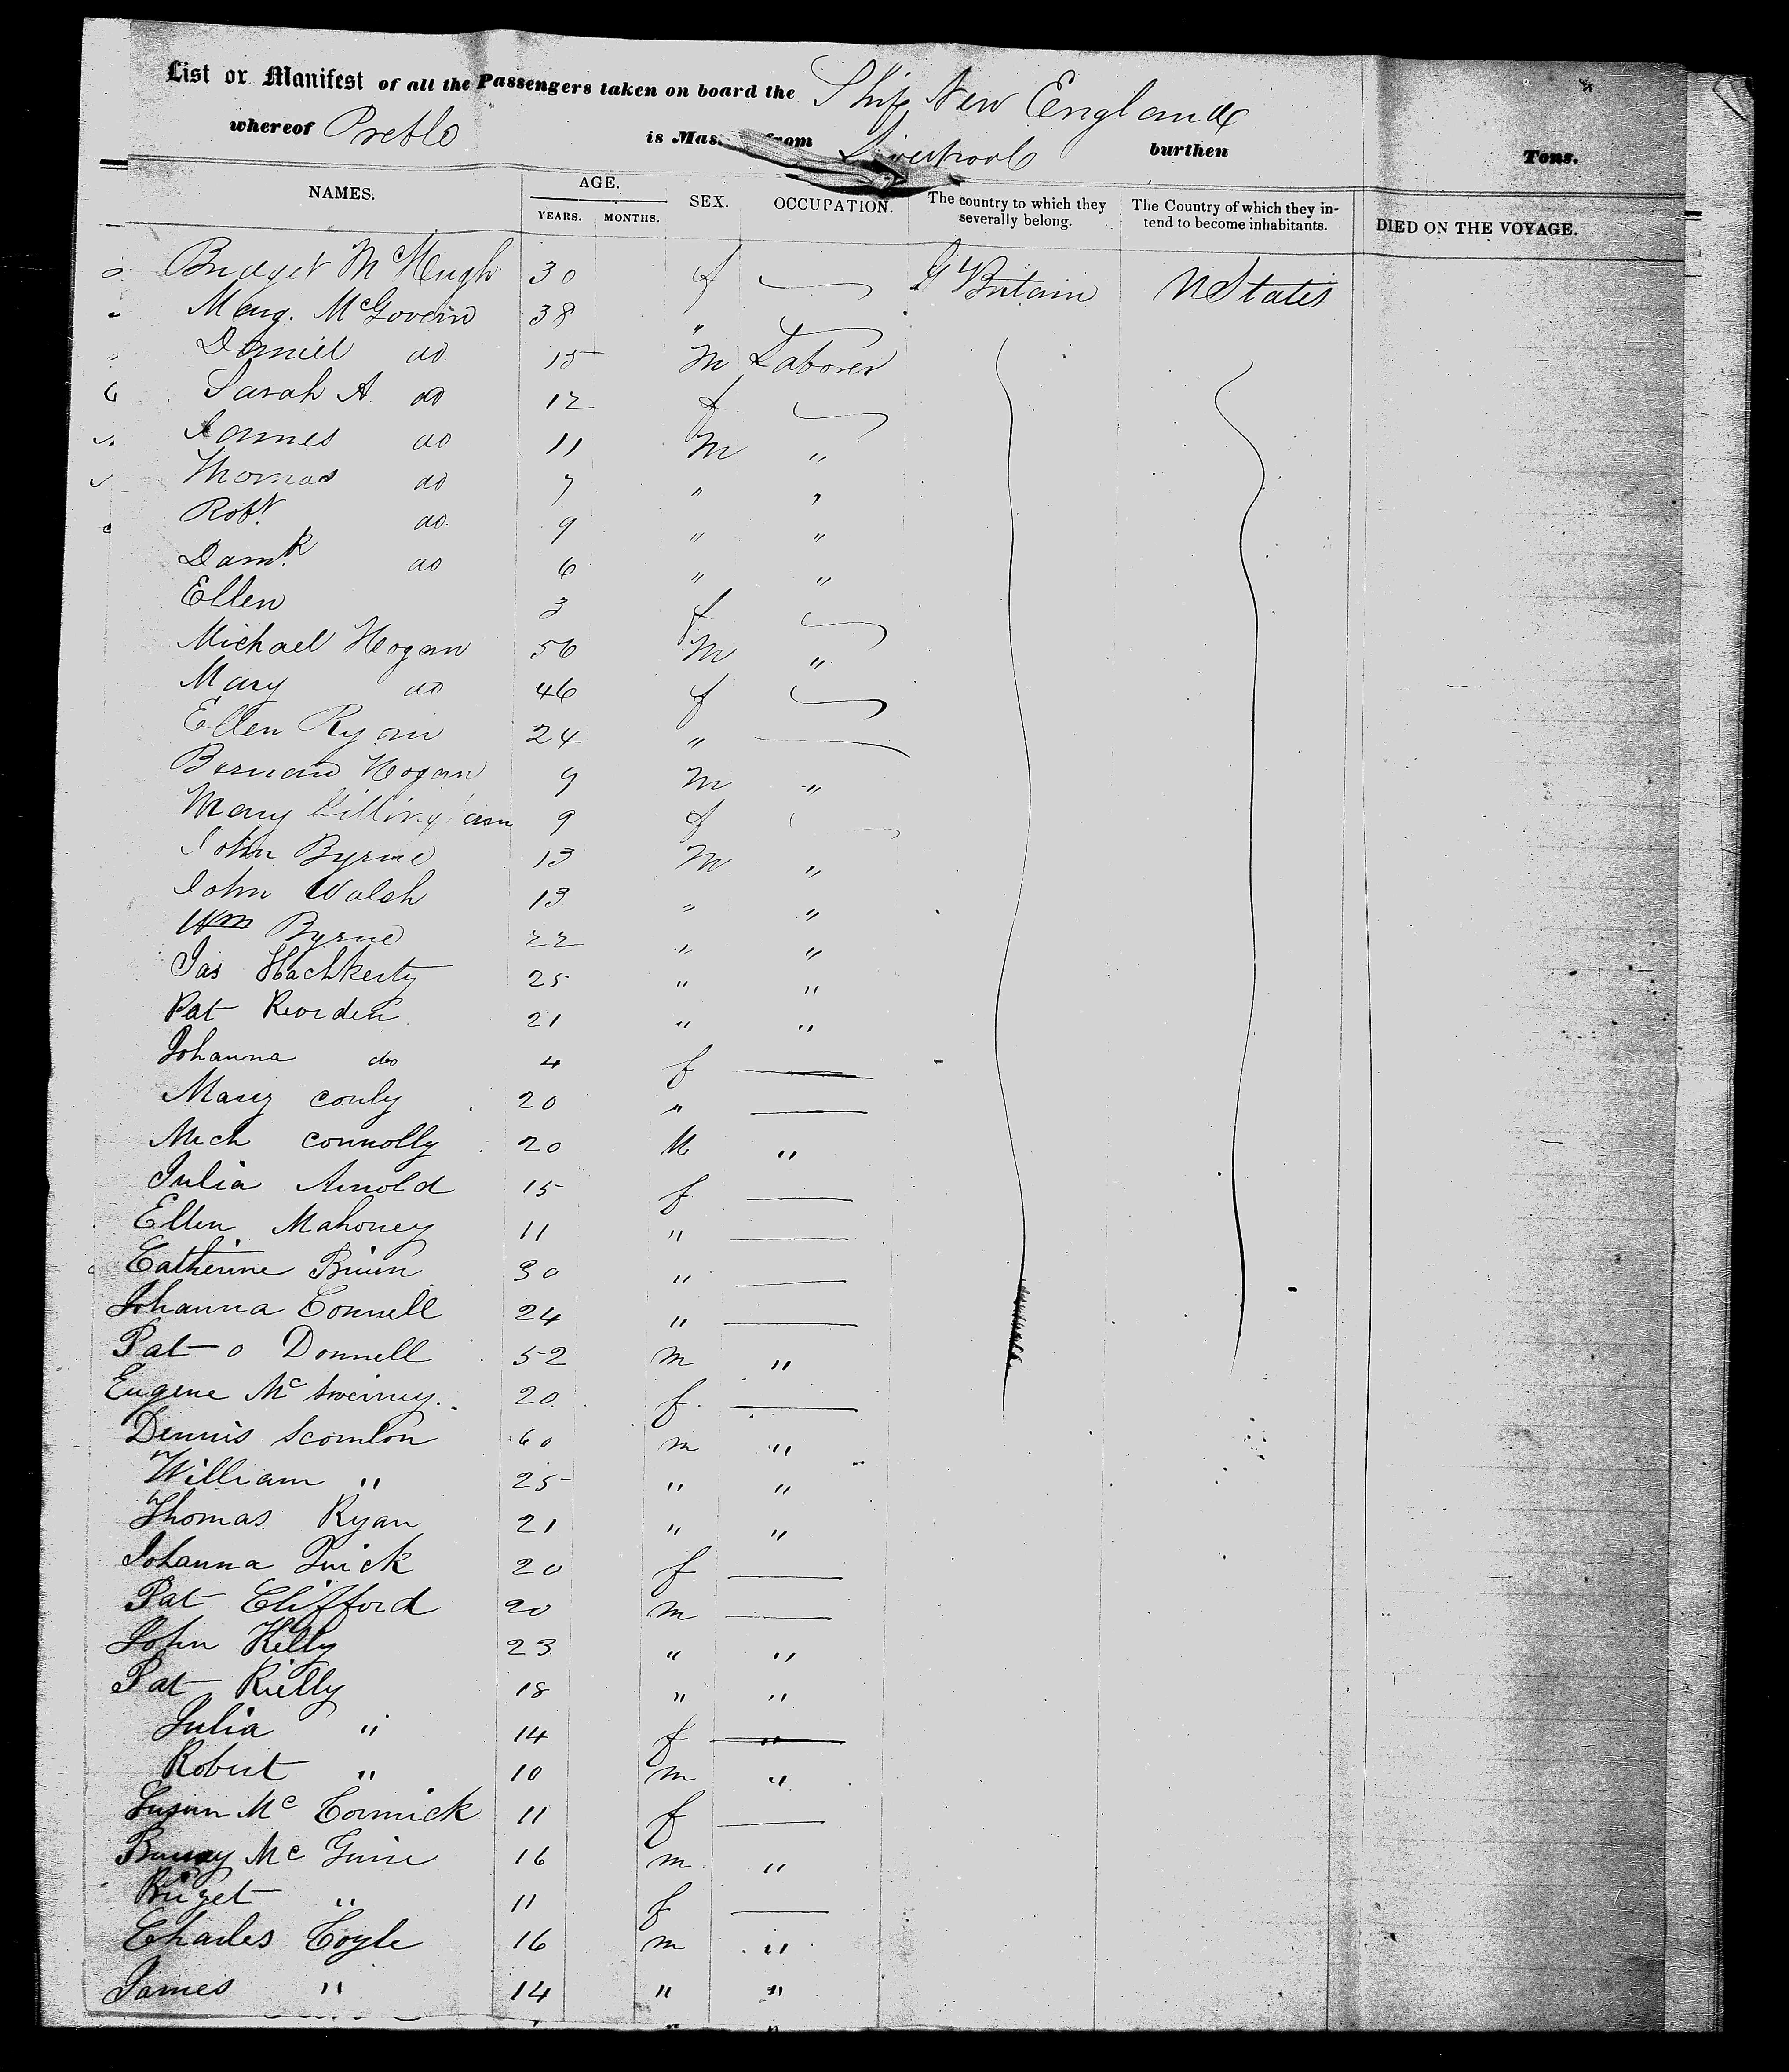 List or Manifest of all the Passengers taken on board the Ship New England
whereof Preble is Mas. from Liverpool burthen Tons.
NAMES. AGE. YEARS. MONTHS. SEX. OCCUPATION. The country to which they severally belong. The Country of which they intend to become inhabitants. DIED ON THE VOYAGE.
Bridget McHugh 30 f Gt Britain U States
Marg. McGovern 38 "
Daniel do 15 M Laborer
Sarah A do 12 f
James do 11 M "
Thomas do 7 " "
Robt. do 9 " "
do 6 " "
Ellen 3 f
Michael Hogan 56 M "
Mary do 46 f
Ellen Ryan 24 "
Bernard Hogan 9 M "
Mary 9 f
John Byrne 13 M "
John Walsh 13 " "
Wm Byrne 22 " "
Jas 25 " "
Pat Reorden 21 " "
Johanna do 4 f
Mary Conly 20 "
Mich Connolly 20 M "
Julia Arnold 15 f
Ellen Mahoney 11 "
Catherine 30 "
Johanna Connell 24 "
Pat o Donnell 52 m "
Eugene Mc Sweiney. 20 f
Dennis Scomlon 60 m "
William " 25 " "
Thomas Ryan 21 " "
Johanna Quick 20 f
Pat Clifford 20 m
John Kelly 23 " "
Pat Rielly 18 " "
Julia " 14 f "
Robert " 10 m "
Susan Mc Cormick 11 f
Mc Guire 16 m "
Brizet " 11 f
Charles Coyle 16 m "
James " 14 " "